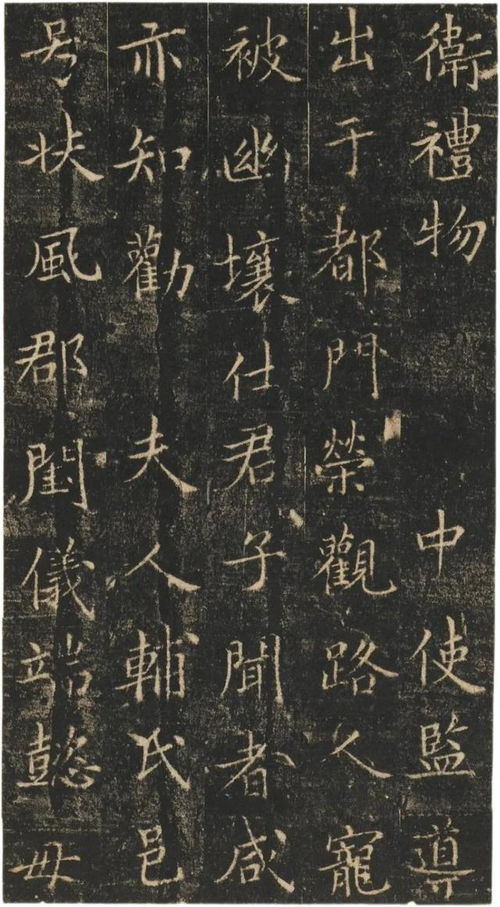 衛禮物　中使監導
出于都門榮觀路人寵
被幽壤仕君子聞者咸
亦知勸　夫人輔氏邑
号扶風郡閨儀端懿母